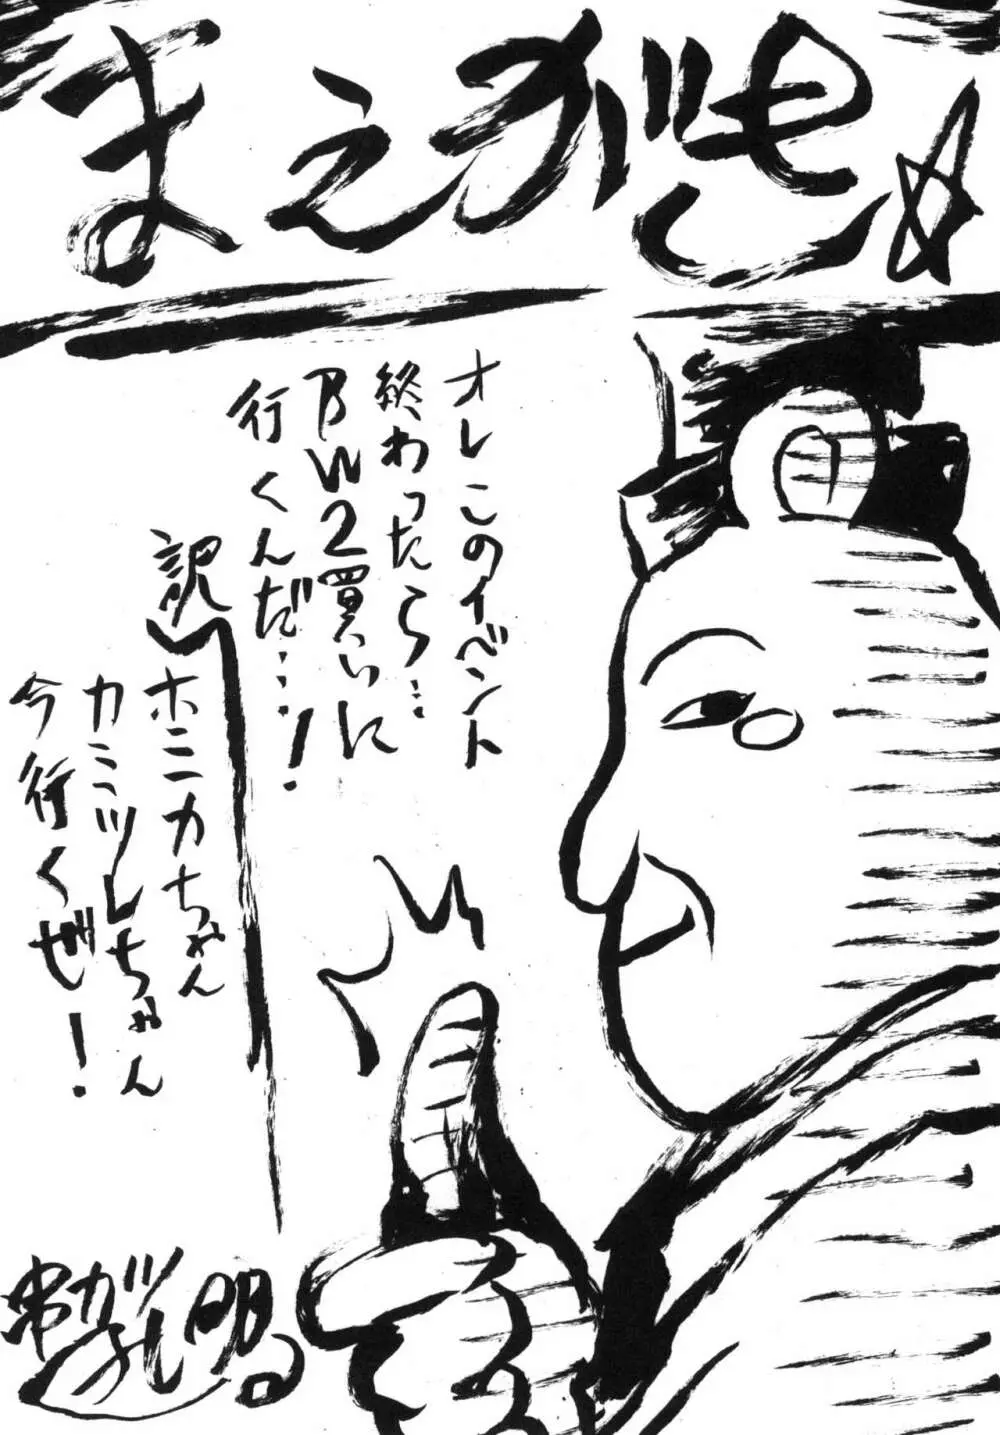 まえがき☆
オレこのイベント
終わったら…
BW2買いに
行くんだ…!
訳
ホミカちゃん
カミツレちゃん
今行くぜ!